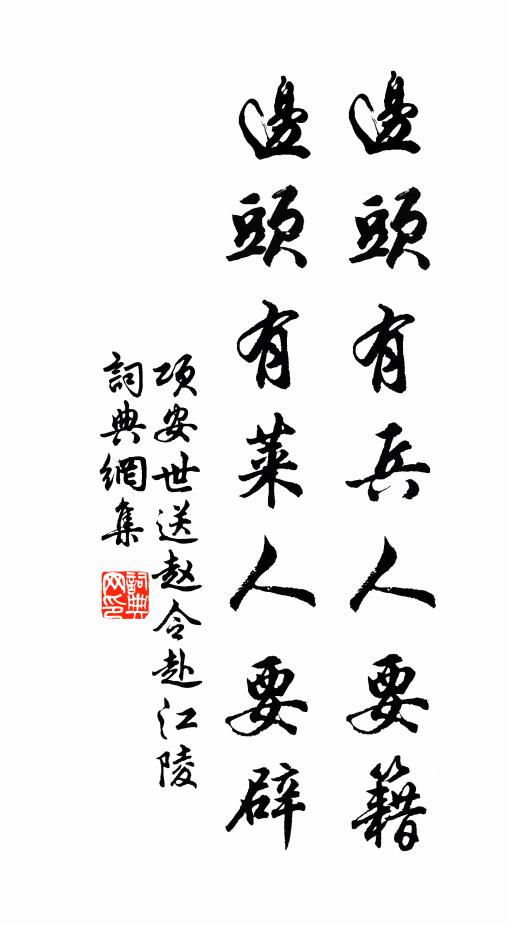 邊頭有兵人要籍
邊頭有萊人要辟
項安世送赵令赴江陵
詞典網集
詞典网印